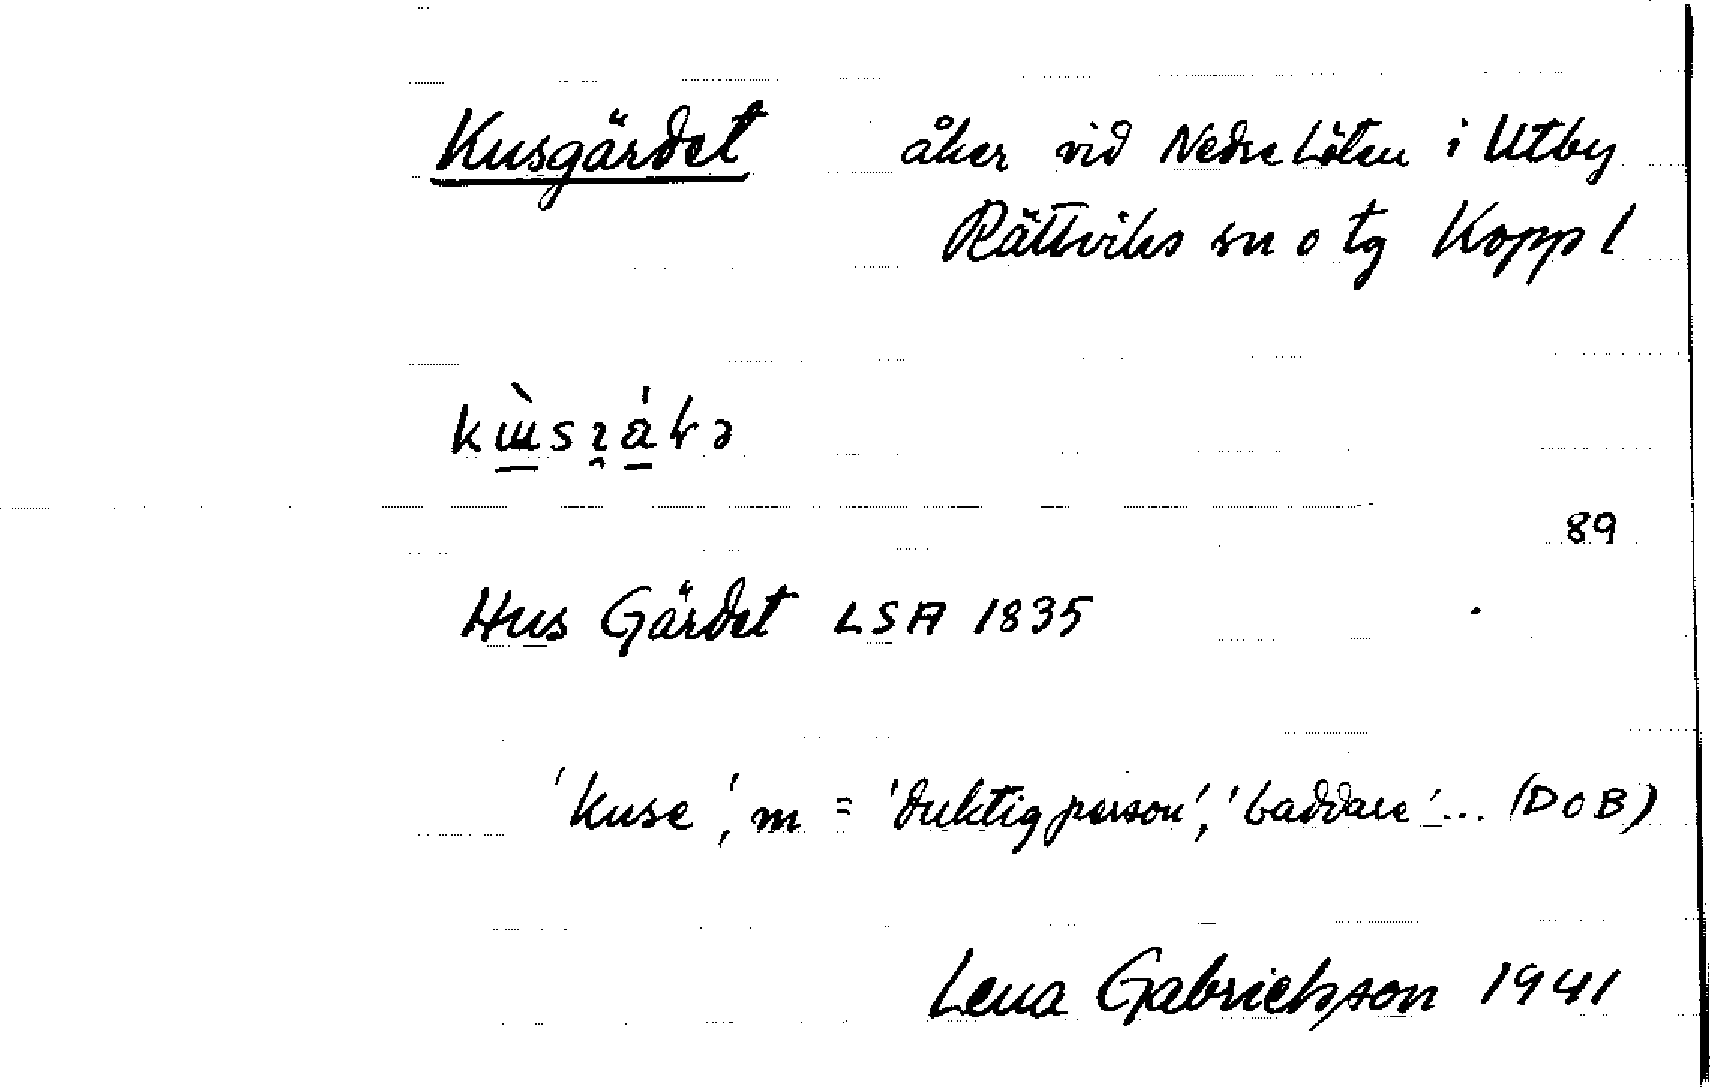 Kusgärdet åker vid Nedre Löten i Utby
Rättviks sn o tg Kopp l
89
Hus Gärdet LSA 1835
'kuse', m = 'duktig person', 'baddare' ... (DOB)
Lena Gabrielsson 1941